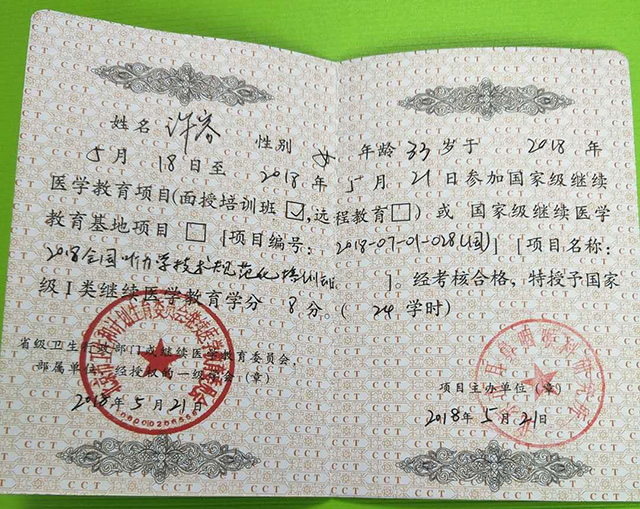 姓名 许容 性别 女 年龄 33 岁于 2018 年
5 月 18 日至 2018 年 5 月 21 日参加国家级继续
医学教育项目(面授培训班☑,远程教育□)或 国家级继续医学
教育基地项目 □ [项目编号: 2018-07-01-028(国)] [项目名称:
2018全国听力学技术规范化培训班 ]。经考核合格,特授予国家
级 I 类继续医学教育学分 8 分。( 24 学时)
省级卫生行政部门或继续医学教育委员会,
部属单位、经授权的一级学会(章)
项目主办单位(章)
2018年 5 月 21 日
2018 年 5 月 21 日